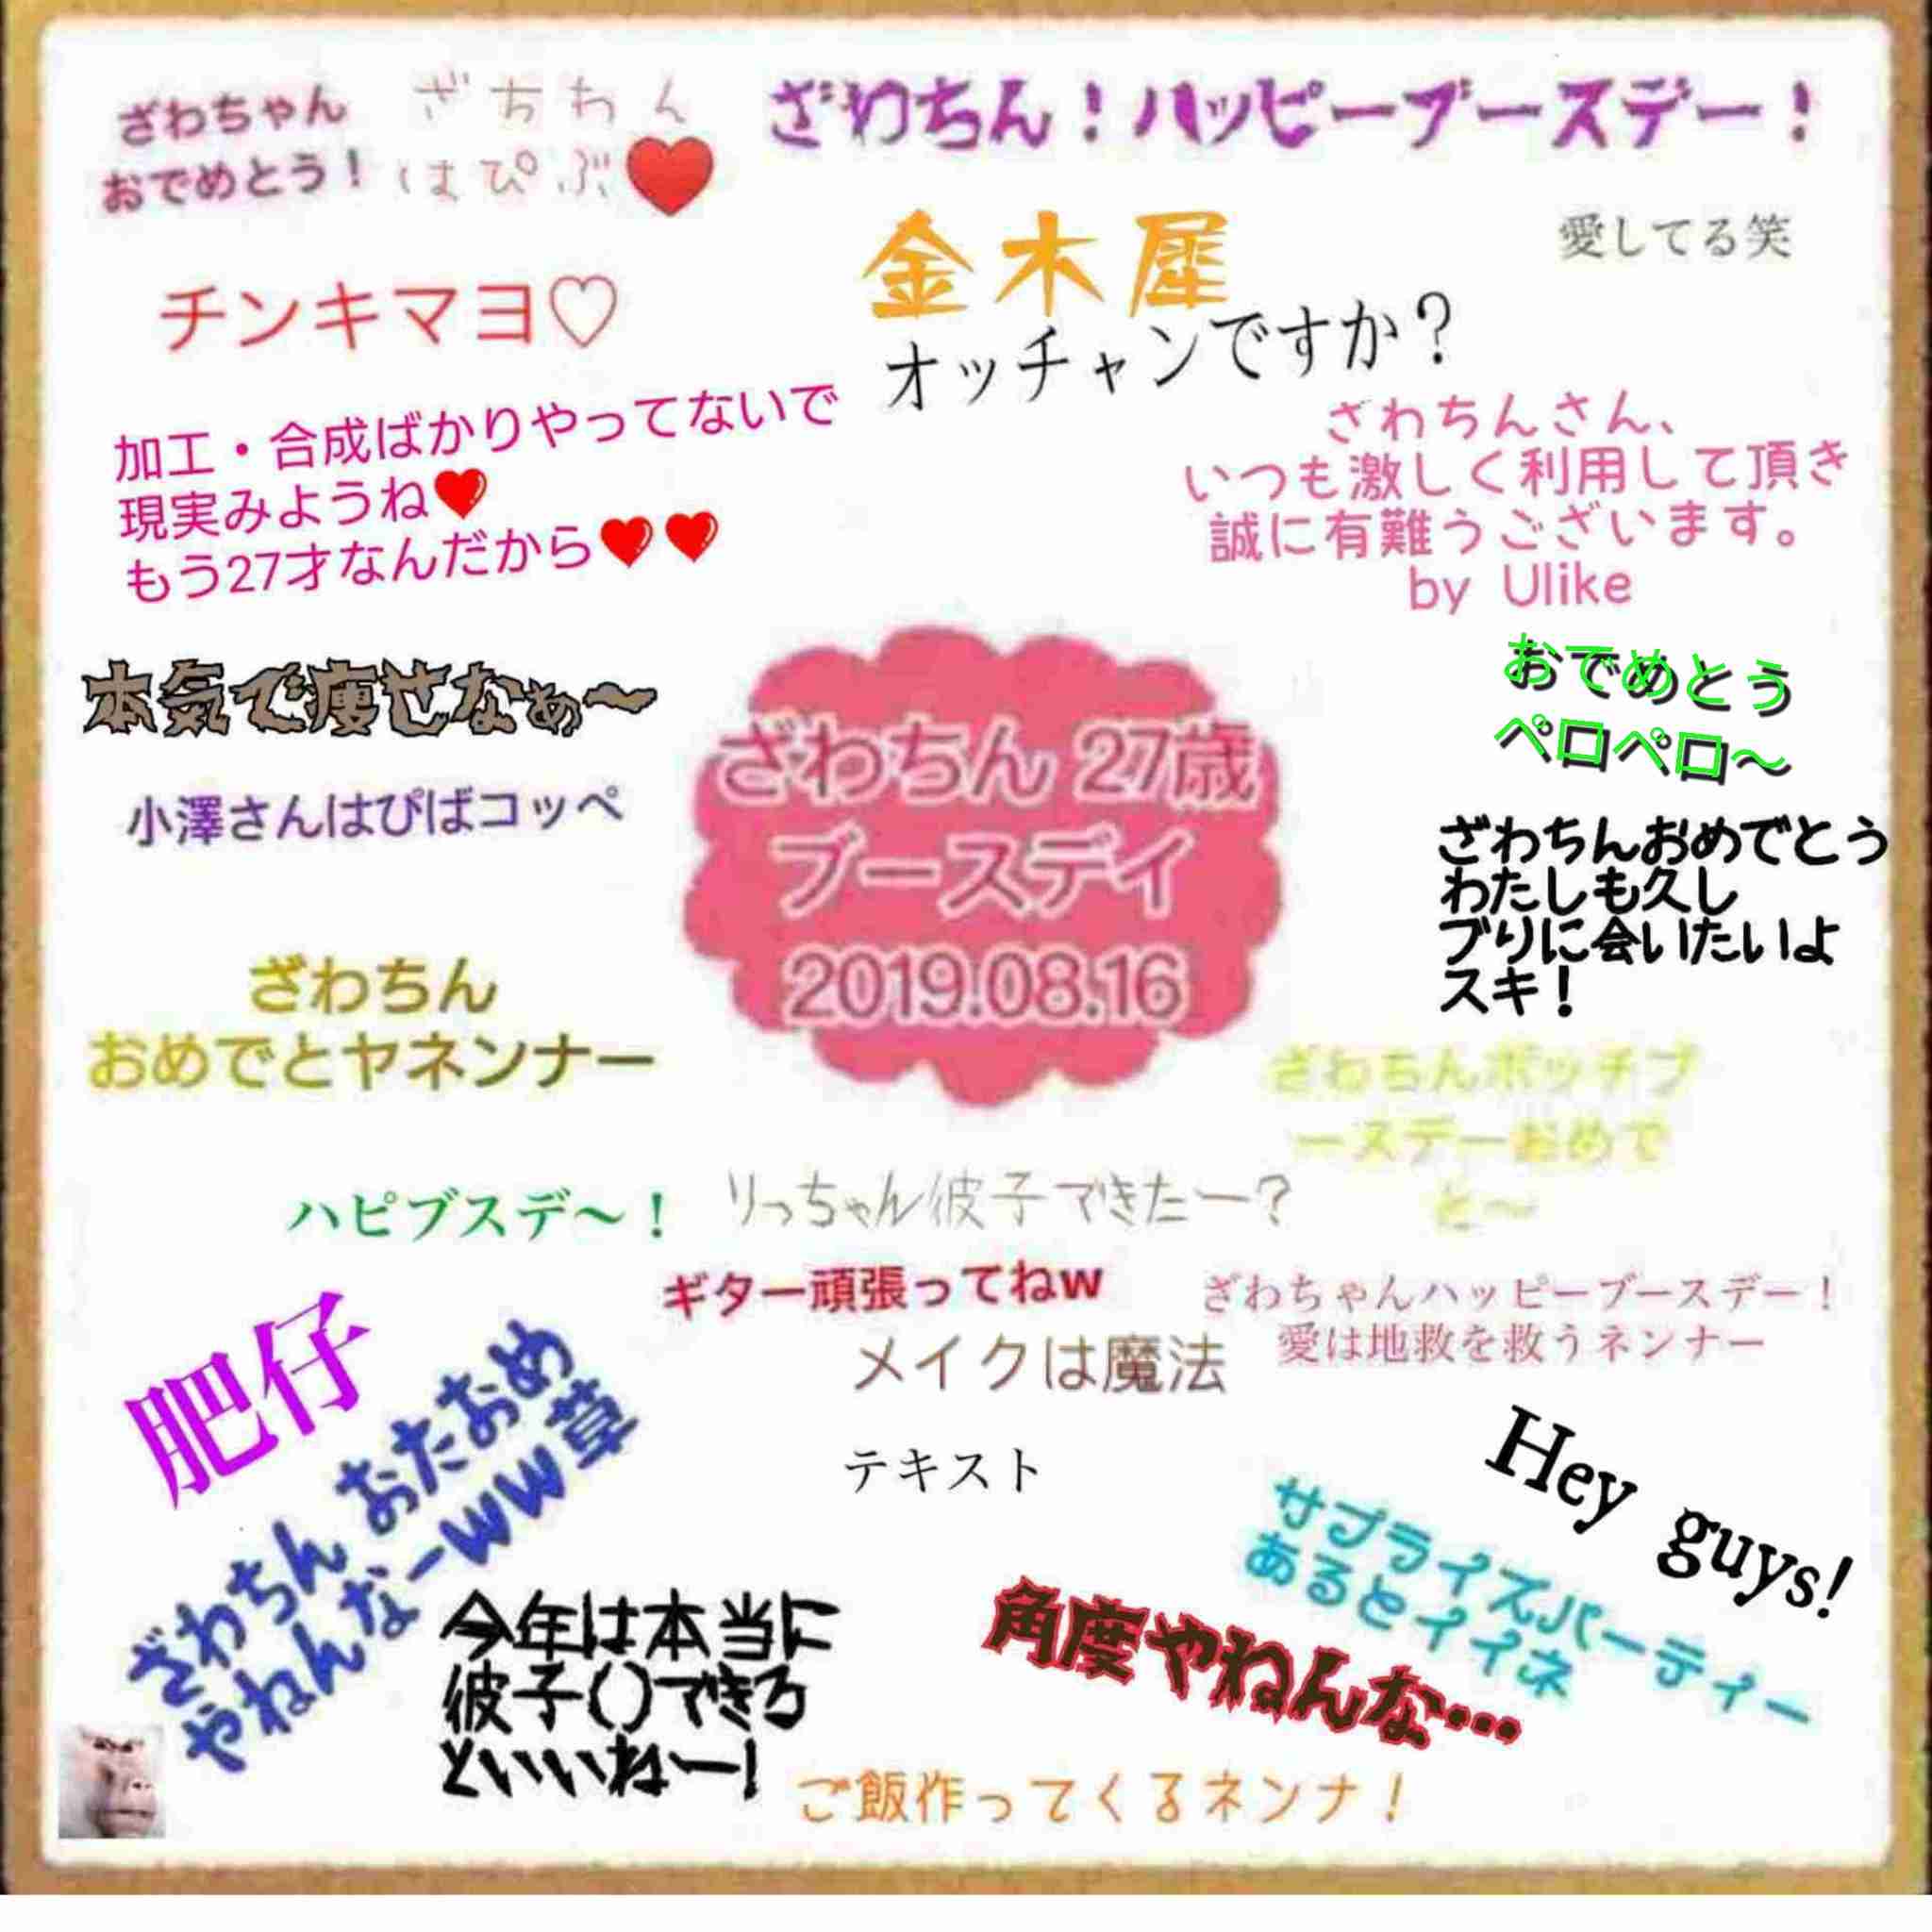 ざわちゃん
おでめとう！
ざちわん
はぴぶ❤
ざわちん！ハッピーブースデー！
金木犀
愛してる笑
チンキマヨ♡
オッチャンですか？
加工・合成ばかりやってないで
現実みようね❤
もう27才なんだから❤❤
ざわちんさん、
いつも激しく利用して頂き
誠に有難うございます。
by Ulike
本気で痩せなぁ〜
おでめとう
ペロペロ〜
小澤さんはぴばコッペ
ざわちん 27歳
ブースデイ
2019.08.16
ざわちんおめでとう
わたしも久し
ブりに会いたいよ
スキ！
ざわちん
おめでとヤネンナー
ざわちんボッチブ
ースデーおめで
と〜
ハピブスデ〜！
りっちゃん彼子できたー？
ギター頑張ってねw
ざわちゃんハッピーブースデー！
愛は地救を救うネンナー
メイクは魔法
肥仔
テキスト
Hey guys!
ざわちん おたおめ
やねんなーww草
サプライズパーティー
あるとイイネ
今年は本当に
彼子()できろ
といいねー！
角度やねんな…
ご飯作ってくるネンナ！